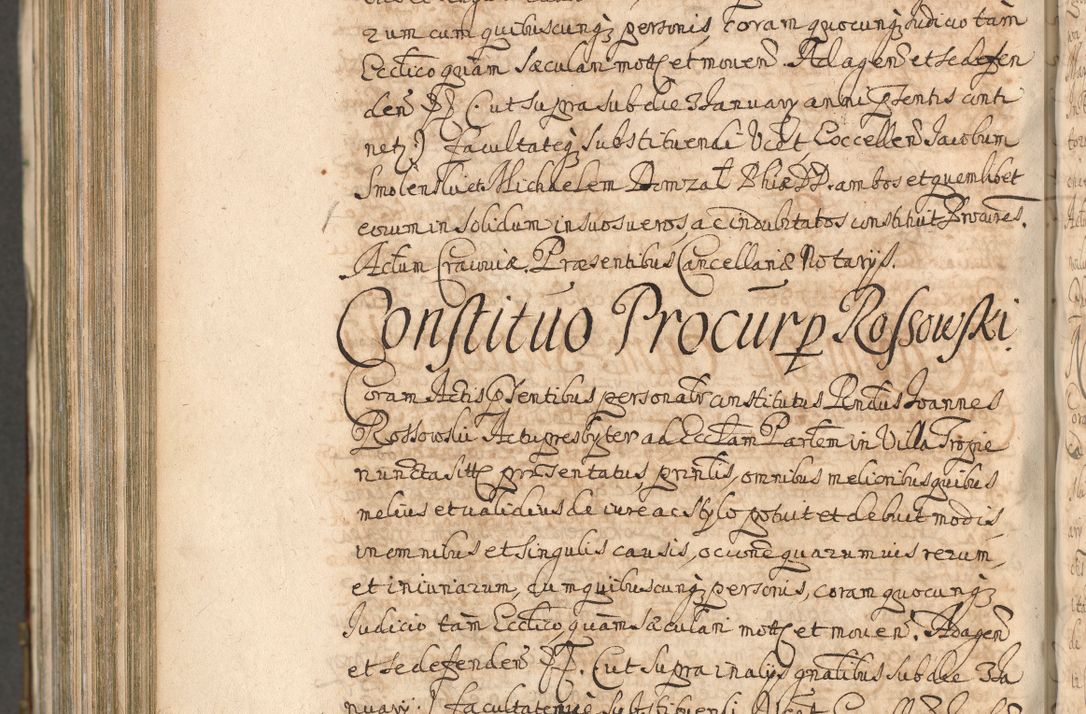 rum cum quibuscunqȝ personis coram quocunqȝ Judicio tam
Ecclĩco quam sæculari mott et mouen̄. Ad agen̄ et se defen
den̄ PP. (ut supra sub die 3 Ianuarij anni p̄sentis conti
netȝ) facultateqȝ substituendi Vcȝt Exccellen̄ Jacobum
Smolenski et Michaelem Domzał Phiæ DD. ambos et quemlibet
eorum in solidum in suos ueros, ac indubitatos constituit Procures.
Actum Cracouiæ. Præsentibus Cancellariæ Notarijs.
Constitutio Procur̄ p Rossowski.
Coram Actis p̄sentibus personalr̄ constitutus Rendus Joannes
Rossowski Actu presbyter ad Eccl̄am Par̄lem in Villa
nuncta sitt præsentatus prin̄lis, omnibus melioribus quibus
melius et validius de iure ac stylo potuit et debuit modis
in omnibus et singulis causis, occione quarumuis rerum,
et iniuriarum, cum quibuscunqȝ personis, coram quocunqȝ
Judicio tam Ecclĩco, quam sæculari mott et mouen̄. Ad agen̄
et se defenden̄ PP. (ut supra in alijs gn̄alibus sub die 3 Ia
nuarij) facultatemqȝ substituendi